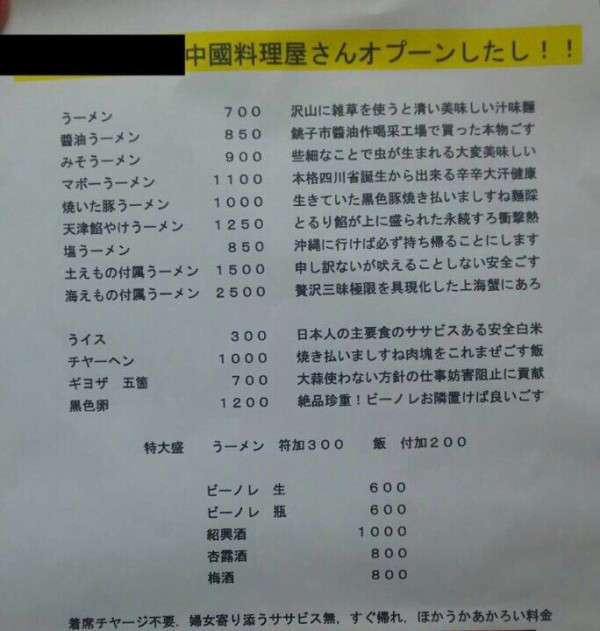 中國料理屋さんオプーンしたし！！
うーメン　７００　沢山に雑草を使うと濆い美味しい汁味麺
醬油うーメン　８５０　銚子市醬油作喝采工場で買った本物ごす
みそうーメン　９００　些細なことで虫が生まれる大変美味しい
マボーうーメン　１１００　本格四川省誕生から出来る辛辛大汗健康
焼いた豚うーメン　１０００　生きていた黒色豚焼き払いましすね麺踩
天津餡やけうーメン　１２５０　とるり餡が上に盛られた永続すろ衝撃熱
塩うーメン　８５０　沖縄に行けば必ず持ち帰ることにします
土えもの付属うーメン　１５００　申し訳ないが吠えることしない安全ごす
海えもの付属うーメン　２５００　贅沢三味極限を具現化した上海蟹にあろ
うイス　３００　日本人の主要食のササビスある安全白米
チヤーヘン　１０００　焼き払いましすね肉塊をこれまぜごす飯
ギヨザ　五箇　７００　大蒜使わない方針の仕事妨害阻止に貢献
黒色卵　１２００　絶品珍重！ビーノレお隣置けば良いごす
特大盛　うーメン　符加３００　飯　付加２００
ビーノレ　生　６００
ビーノレ　瓶　６００
紹興酒　１０００
杏露酒　８００
梅酒　８００
着席チヤージ不要．婦女寄り添うササビス無．すぐ帰れ．ほかうかあかろい料金